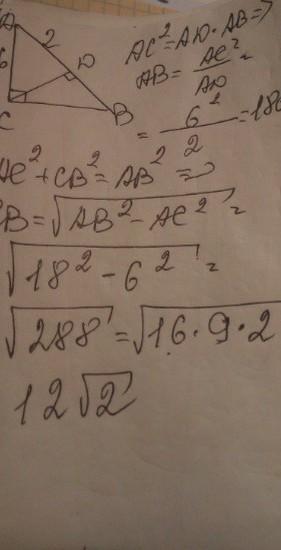 A
2
6
D
C
B
AC² = AD · AB =>
AB = AC²/AD =
= 6²/2 = 18
AC² + CB² = AB² =>
CB = √(AB² - AC²) =
√(18² - 6²) =
√288 = √(16 · 9 · 2)
12√2